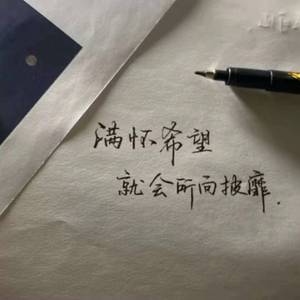 满怀希望
就会所向披靡.